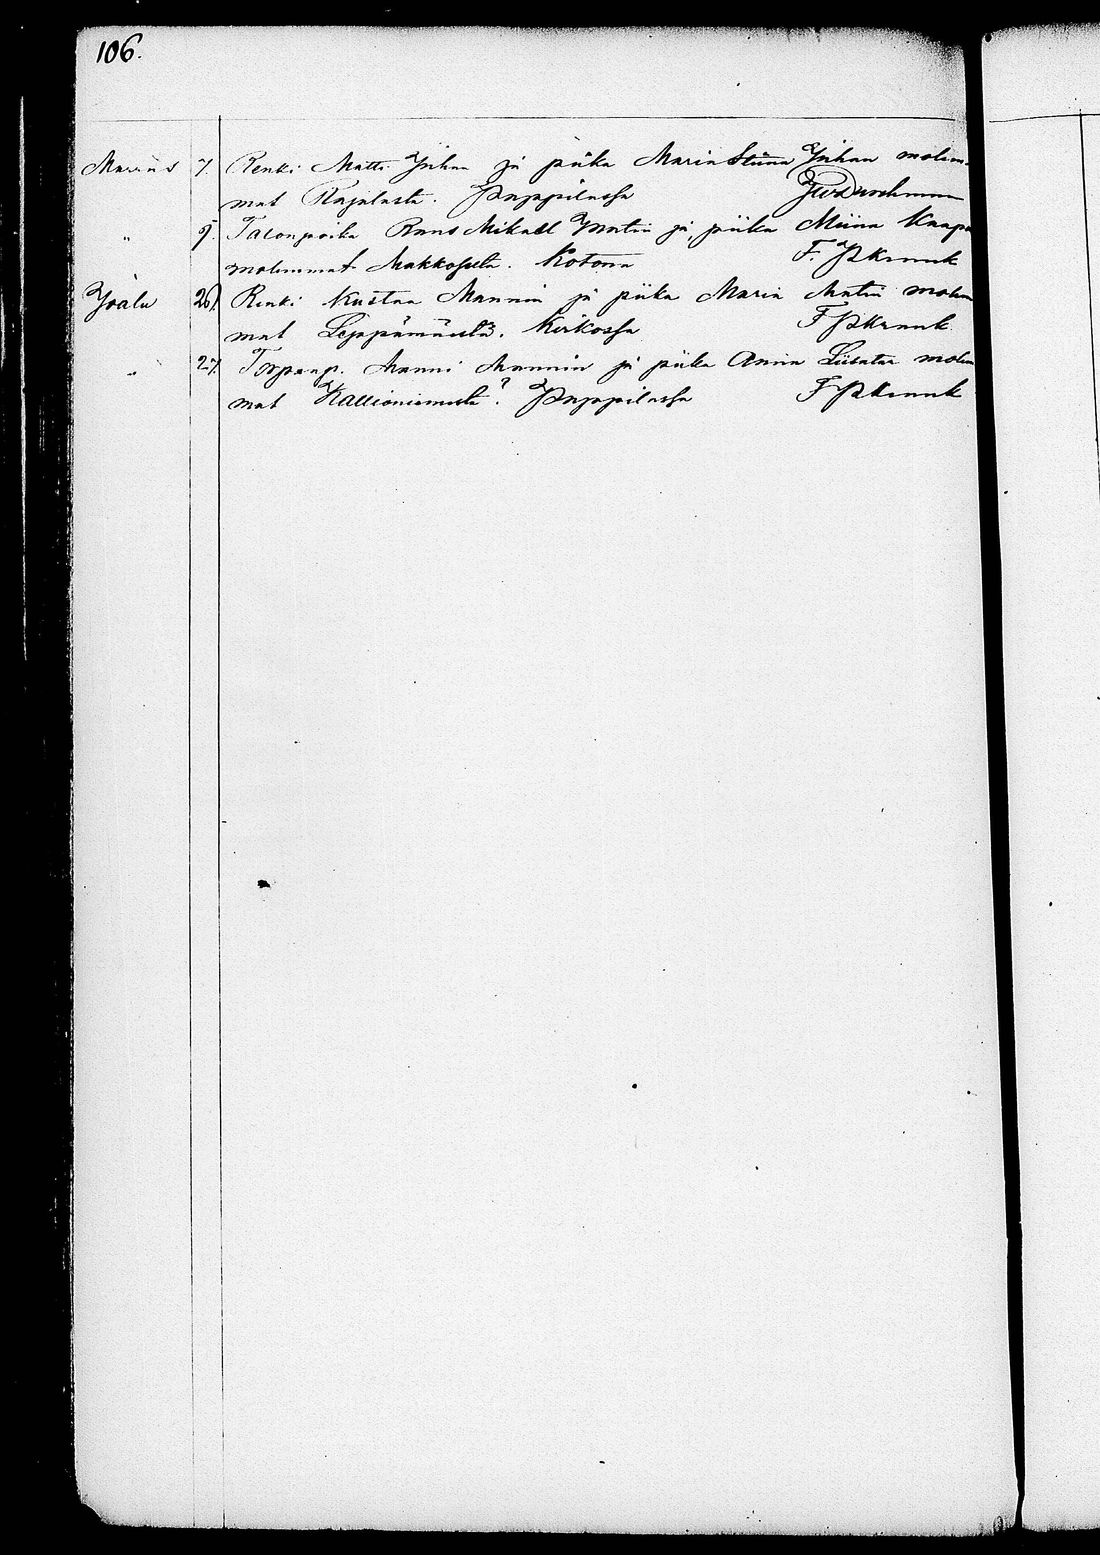 106.
Marras 7. Renki Matti Juhan ja piika Maria Stiina Juhan molem-
mat Rajalasta. Pappilassa
" 9. Talonpoika Rans Mikael Matin ja piika Miina Kaapo
molemmat Makkosista. Kotona F. Pskrank
Joulu 26. Renki Kustaa Mannin ja piika Maria Matin molem
mat Leppämäestä. Kirkossa F Pskrank
" 27. Torpanp. Manni Mannin ja piika Anna Liisatar molem
mat Kallioniemestä? Pappilassa F Pskrank